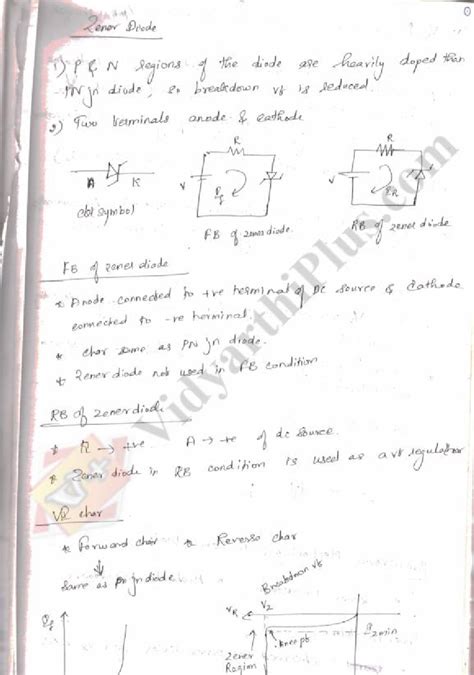 Zener Diode
1) P & N regions of the diode are heavily doped than
PN jn diode, so breakdown vt is reduced.
2) Two terminals anode & cathode
R
R
A K
V
If
V
IR
ckt symbol
FB of zener diode
RB of zener diode
FB of zener diode
* Anode connected to +ve terminal of DC source & Cathode
connected to -ve terminal.
* char same as PN jn diode.
* Zener diode not used in FB condition
RB of zener diode
* K → +ve. A → -ve of dc source.
* Zener diode in RB condition is used as a vt regulator
VI char
* Forward char * Reverse char
same as pn jn diode
Breakdown vt
VR VZ
If
knee pt
Izmin
Zener
Region
VidyarthiPlus.com
V+